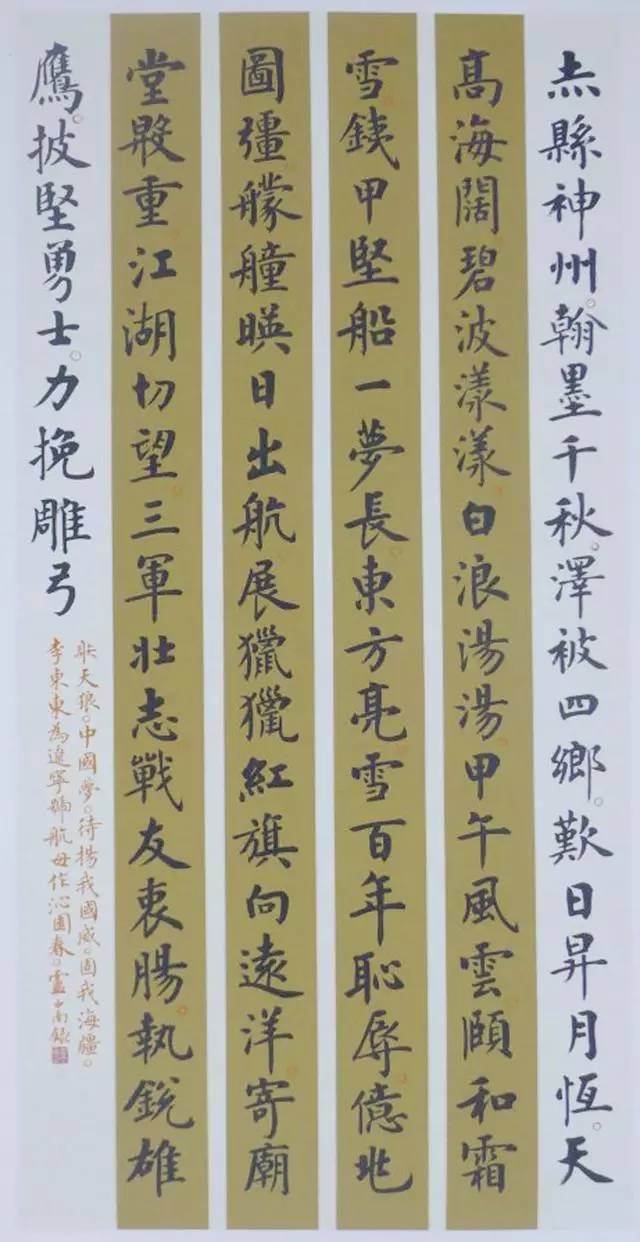 赤縣神州。翰墨千秋。澤被四鄉。歎日昇月恆。天
高海闊。碧波漾漾。白浪湯湯。甲午風雲。頤和霜
雪。銕甲堅船一夢長。東方亮。雪百年恥辱。億兆
圖彊。艨艟暎日出航。展獵獵紅旗向遠洋。寄廟
堂殷重。江湖切望。三軍壯志。戰友衷腸。執銳雄
鷹。披堅勇士。力挽雕弓
眎天狼。中國夢。待揚我國威。固我海壃。
李東東為遼寧號航母作沁園春。盧中南録